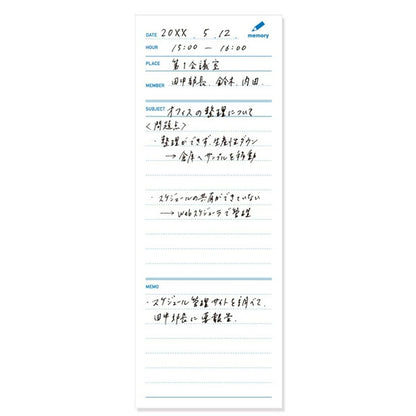 memory
DATE 20XX . 5 . 12 .
HOUR 15:00 — 16:00
PLACE 第1会議室
MEMBER 田中部長、鈴木、内田
SUBJECT オフィスの整理について
〈問題点〉
・整理ができず、生産性ダウン
→ 倉庫へサンプルを移動
・スケジュールの共有ができていない
→ Webスケジューラで管理
MEMO
・スケジュール管理サイトを調べて、
田中部長に要報告.